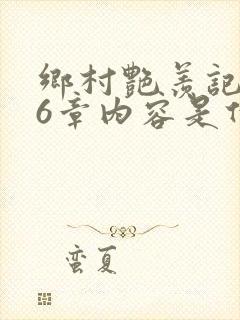 鄉村艷羨記
6章內容是
蛮夏